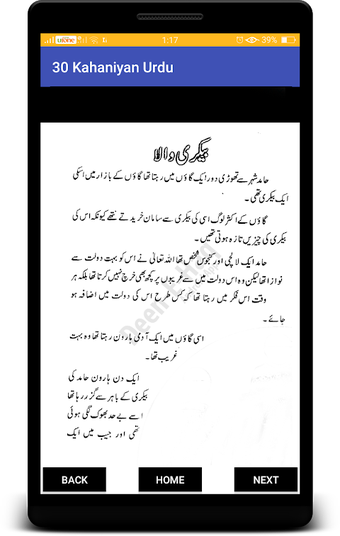 1:17
39%
30 Kahaniyan Urdu
بیکری والا
حامد شہر سے تھوڑی دور ایک گاؤں میں رہتا تھا گاؤں کے بازار میں اسکی
ایک بیکری تھی۔
گاؤں کے اکثر لوگ اسی کی بیکری سے سامان خریدتے تھے کیونکہ اس کی
بیکری کی چیزیں تازہ ہوتی تھیں۔
حامد ایک لالچی اور کنجوس شخص تھا اللہ تعالیٰ نے اس کو بہت دولت سے
نوازا تھا لیکن وہ اس دولت میں سے غریبوں پر کچھ بھی خرچ نہیں کرتا تھا بلکہ ہر
وقت اس فکر میں رہتا تھا کہ کس طرح اس کی دولت میں اضافہ ہو
جائے۔
اسی گاؤں میں ایک آدمی ہارون رہتا تھا وہ بہت
غریب تھا۔
ایک دن ہارون حامد کی
بیکری کے باہر سے گزر رہا تھا
اسے بے حد بھوک لگی ہوئی
تھی اور جیب میں ایک
BACK
HOME
NEXT